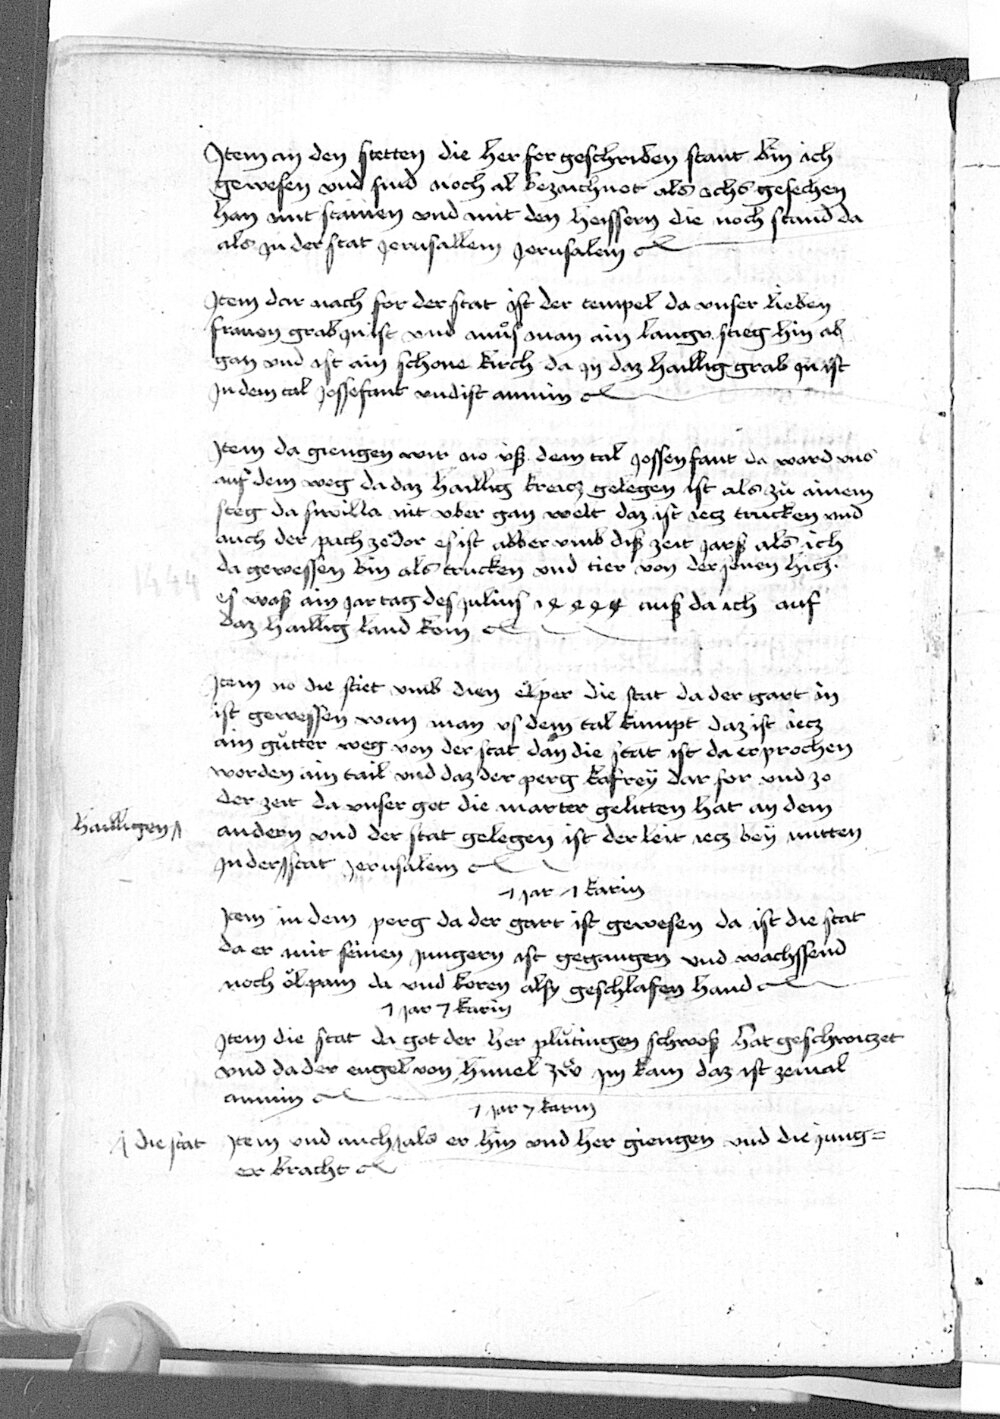 Item an den stetten die her for geschriben stant bin ich
gewesen vnd sind noch al bezaichnet als ichs gesechen
han mit stainen vnd mit den heissern die noch stand da
als jn der stat Jerusallem Jerusalem
Item dar nach for der stat ist der tempel da vnser lieben
frauen grab jn ist vnd muͦs man ain lange stieg hin ab
gan vnd ist ain schone kirch da jn daz hailligg grab jn ist
jn dem tal Jossefant vnd ist annim
Item da giengen wir no vß dem tal Jossenfant da ward vns
auf dem weg da daz haillig kreicz gelegen ist als zů ainem
steg da siwilla nit vber gan welt daz ist iecz trucken vnd
auch der pach zedor es ist abber vmb diß zeit jarß als ich
da gewessen bin als trucken vnd tier von der hicz
es waß ain jar tag des julius 1444 auß da ich auf
daz haillig land kom
Item no die stiet vmb dien elper die stat da der gart in
ist gewessen wan man vs dem tal kumpt daz ist iecz
ain gůtter weg von der stat dan die stat ist da erprochen
worden ain tail vnd daz der perg kafreÿ dar for vnd zo
der zeit da vnser got die marter gelitten hat an dem
hailligen
andern vnd der stat gelegen ist der leit iecz beÿ mitten
jn der stat Jerusalem
7 jar 7 karin
Item in dem perg da der gart ist gewesen da ist die stat
da er mit seinen jungern ist gegangen vnd wachssend
noch ölpam da vnd koren alsy geschlafen hand
7 jar 7 karin
Item die stat da got der her plůtingen schwoß hat geschwiczet
vnd da der engel von himel zů jm kam daz ist zemal
annim
7 jar 7 karin
die stat
Item vnd auch als er hin vnd her giengen vnd die jung=
er bracht
1444